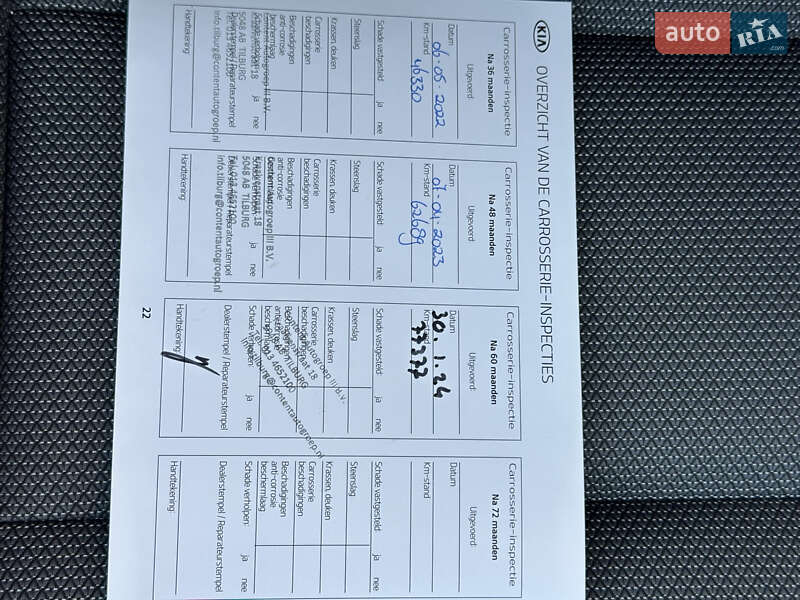 auto RIA
KIA
OVERZICHT VAN DE CARROSSERIE-INSPECTIES
Carrosserie-inspectie
Na 36 maanden
Uitgevoerd:
Datum
06-05-2022
Km-stand
46330
Schade vastgesteld: ja nee
Steenslag
Krassen, deuken
Carrosserie
beschadigingen
Beschadigingen
anti-corrosie
beschermlaag
Schade verholpen: ja nee
Dealerstempel / Reparateurstempel
5048 AB TILBURG
Tel. 013 4652100
info.tilburg@contentautogroep.nl
Handtekening:
Carrosserie-inspectie
Na 48 maanden
Uitgevoerd:
Datum
07-04-2023
Km-stand
62689
Schade vastgesteld: ja nee
Steenslag
Krassen, deuken
Carrosserie
beschadigingen
Beschadigingen
anti-corrosie
Contentautogroep III B.V.
Kraaivenstraat 18
5048 AB TILBURG
ja nee
Tel. 013 4652100
Dealerstempel / Reparateurstempel
info.tilburg@contentautogroep.nl
Handtekening:
Carrosserie-inspectie
Na 60 maanden
Uitgevoerd:
Datum
30.1.24
Km-stand
77377
Schade vastgesteld: ja nee
Steenslag
Krassen, deuken
Carrosserie
beschadigingen
autogroep III B.V.
18
TILBURG
013 4652100
tilburg@contentautogroep.nl
ja nee
Dealerstempel / Reparateurstempel
Handtekening:
Carrosserie-inspectie
Na 72 maanden
Uitgevoerd:
Datum
Km-stand
Schade vastgesteld: ja nee
Steenslag
Krassen, deuken
Carrosserie
beschadigingen
Beschadigingen
anti-corrosie
beschermlaag
Schade verholpen: ja nee
Dealerstempel / Reparateurstempel
Handtekening:
22